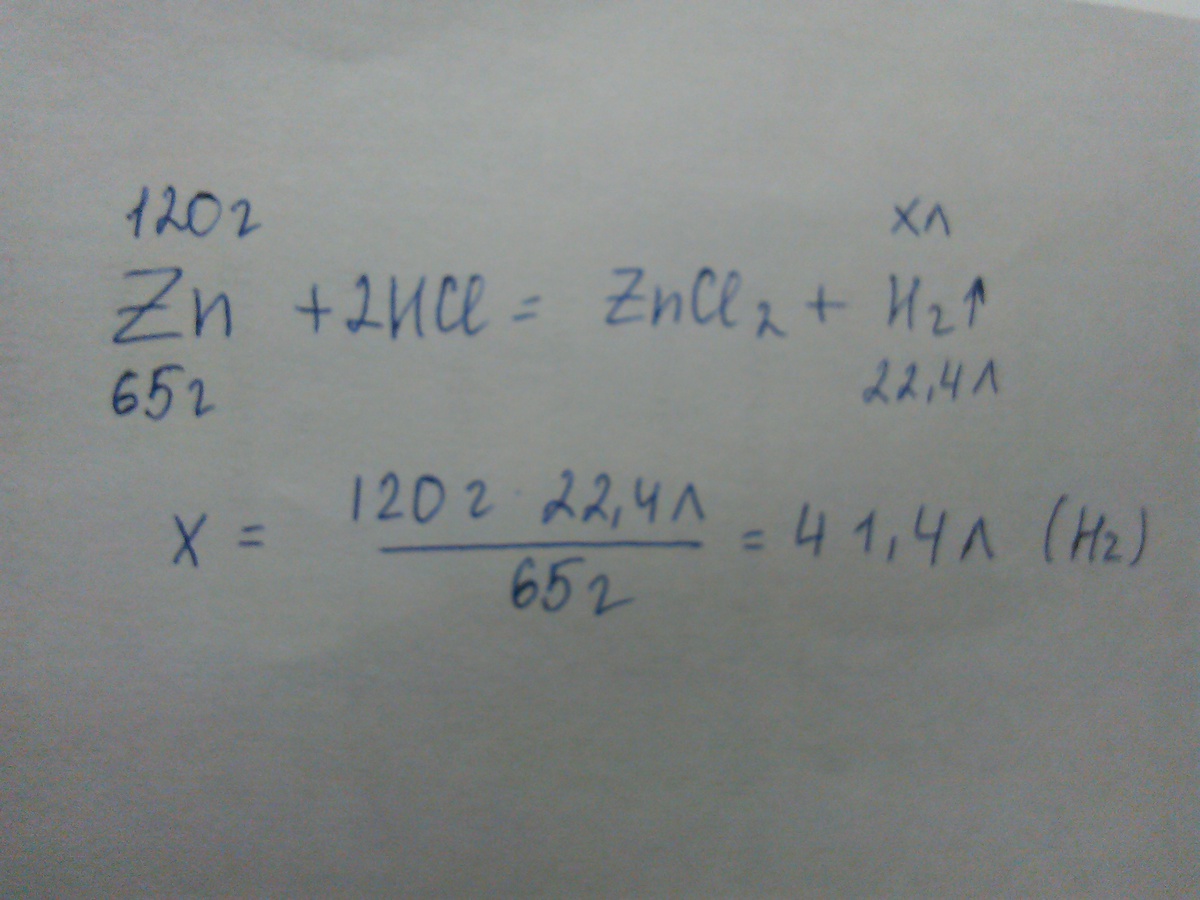 120г xл
Zn + 2HCl = ZnCl₂ + H₂↑
65г 22,4л
x = 120г · 22,4л / 65г = 41,4л (H₂)